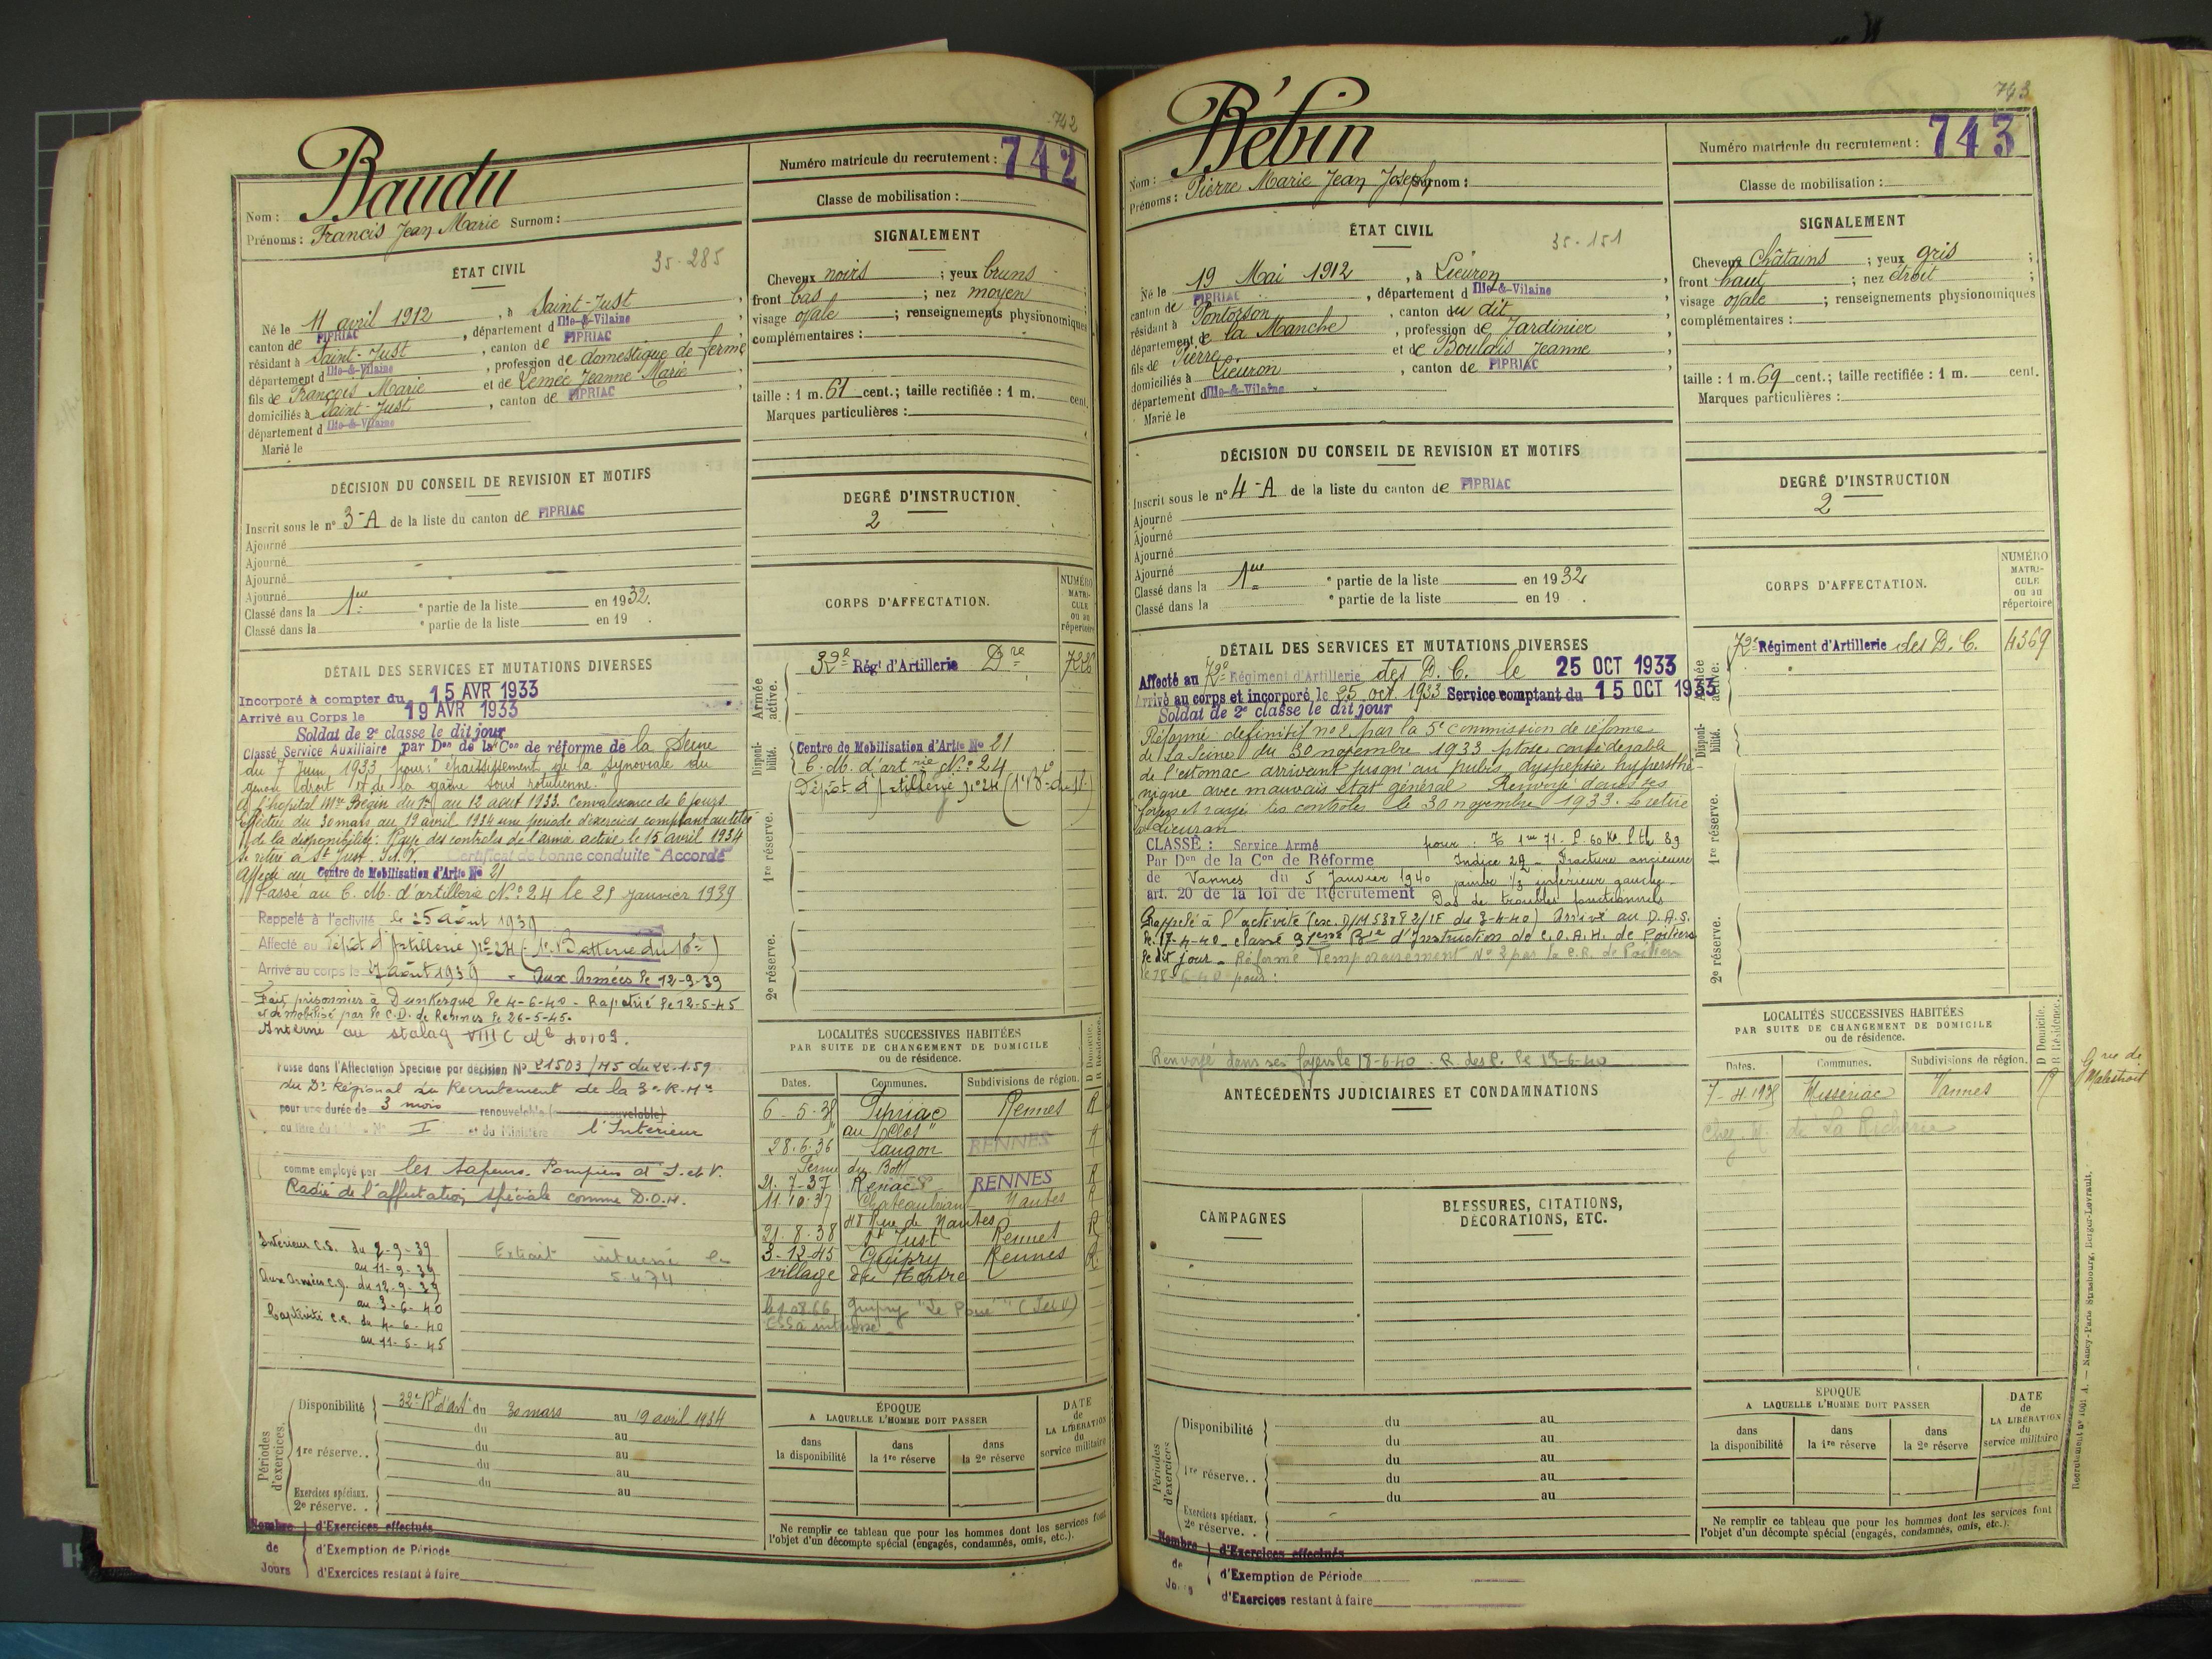 742
Baudu
Nom :
Prénoms : Francis Jean Marie Surnom :
Numéro matricule du recrutement : 742
Classe de mobilisation :
ÉTAT CIVIL
35-285
Né le 11 avril 1912, à Saint-Just,
canton de PIPRIAC, département d Ille-&-Vilaine,
résidant à Saint-Just, canton de PIPRIAC,
département d Ille-&-Vilaine, profession de domestique de ferme
fils de François Marie et de Lemée Jeanne Marie,
domiciliés à Saint-Just, canton de PIPRIAC,
département d Ille-&-Vilaine
Marié le
SIGNALEMENT
Cheveux noirs ; yeux bruns
front bas ; nez moyen
visage ovale ; renseignements physionomiques
complémentaires :
taille : 1 m. 61 cent.; taille rectifiée : 1 m. cent.
Marques particulières :
DÉCISION DU CONSEIL DE REVISION ET MOTIFS
Inscrit sous le n° 3-A de la liste du canton de PIPRIAC
Ajourné
Ajourné
Ajourné
Ajourné
Classé dans la 1ère e partie de la liste en 1932.
Classé dans la e partie de la liste en 19 .
DEGRÉ D'INSTRUCTION
2
CORPS D'AFFECTATION.
NUMÉRO MATRI-CULE ou au répertoire
Armée active.
32e Régt d'Artillerie Dre
Disponi-bilité.
Centre de Mobilisation d'Artie No 21
C. M. d'artrie No 24
Dépôt d'Artillerie No 24
1re réserve.
2e réserve.
DÉTAIL DES SERVICES ET MUTATIONS DIVERSES
Incorporé à compter du 15 AVR 1933
Arrivé au Corps le 19 AVR 1933
Soldat de 2e classe le dit jour
Classé Service Auxiliaire par Don de la Con de réforme de la Seine
du 7 Juin 1933 pour : "épaississement de la synoviale du
genou droit et de la gaine sous rotulienne."
A l'hopital Mre Bégin du 1er au 12 aout 1933. Convalescence de 6 jours
Effectué du 30 mars au 19 avril 1934 une période d'exercices comptant au titre
de la disponibilité. Rayé des controles de l'armée active le 15 avril 1934
Se retire à St Just. I.&V. Certificat de bonne conduite "Accordé"
Affecté au Centre de Mobilisation d'Artie No 21
Passé au C. M. d'artillerie No 24 le 21 Janvier 1939
Rappelé à l'activité le 25 Août 1939
Affecté au Dépôt d'Artillerie No 24 (1e Batterie du 16e)
Arrivé au corps le 27 août 1939 - Aux Armées le 12-9-39
Fait prisonnier à Dunkerque le 4-6-40 - Rapatrié le 12-5-45
et démobilisé par le C.D. de Rennes le 26-5-45.
Interné au stalag VIII C Mle 40109.
Passé dans l'Affectation Spéciale par décision No 21503/45 du 22-1-59
du Dr Régional du Recrutement de la 3e R.Mre
pour une durée de 3 mois renouvelable
au titre du No I du Ministère l'Intérieur
comme employé par les Sapeurs-Pompiers d'I. et V.
Radié de l'affectation spéciale comme D.O.M.
Intérieur C.S. du 2-9-39
au 11-9-39
Aux Armées C.G. du 12-9-39
au 3-6-40
Captivité C.S. du 4-6-40
au 11-5-45
Extrait interné le
5-4-74
LOCALITÉS SUCCESSIVES HABITÉES
PAR SUITE DE CHANGEMENT DE DOMICILE
ou de résidence.
D Domicile. R Résidence.
Dates. Communes. Subdivisions de région.
6-5-35 Pipriac Rennes R
au "Clos"
28-6-36 Langon RENNES R
Ferme du Bott
21-7-37 Renac RENNES R
11-10-37 Chateaubriant Nantes R
48 Rue de Nantes
21-8-38 St Just Rennes R
3-12-45 Guipry Rennes R
village du Tertre
Guipry "Le Poué" (I et V)
Périodes d'exercices.
Disponibilité 32e Rt d'art du 30 mars au 19 avril 1934
du au
1re réserve.. du au
du au
du au
Exercices spéciaux.
2e réserve. .
ÉPOQUE
A LAQUELLE L'HOMME DOIT PASSER
dans la disponibilité dans la 1re réserve dans la 2e réserve
DATE de LA LIBÉRATION du service militaire
Ne remplir ce tableau que pour les hommes dont les services font
l'objet d'un décompte spécial (engagés, condamnés, omis, etc.).
Nombre de Jours
d'Exercices effectués
d'Exemption de Période
d'Exercices restant à faire
743
Bébin
Nom :
Prénoms : Pierre Marie Jean Joseph Surnom :
Numéro matricule du recrutement : 743
Classe de mobilisation :
ÉTAT CIVIL
35-151
Né le 19 Mai 1912, à Lieuron,
canton de PIPRIAC, département d Ille-&-Vilaine,
résidant à Pontorson, canton du dit,
département de la Manche, profession de Jardinier,
fils de Pierre et de Boulais Jeanne,
domiciliés à Lieuron, canton de PIPRIAC,
département d Ille-&-Vilaine
Marié le
SIGNALEMENT
Cheveux Châtains ; yeux gris
front haut ; nez droit ;
visage ovale ; renseignements physionomiques
complémentaires :
taille : 1 m. 69 cent.; taille rectifiée : 1 m. cent.
Marques particulières :
DÉCISION DU CONSEIL DE REVISION ET MOTIFS
Inscrit sous le n° 4-A de la liste du canton de PIPRIAC
Ajourné
Ajourné
Ajourné
Ajourné
Classé dans la 1ère e partie de la liste en 1932
Classé dans la e partie de la liste en 19 .
DEGRÉ D'INSTRUCTION
2
CORPS D'AFFECTATION.
NUMÉRO MATRI-CULE ou au répertoire
Armée active.
72e Régiment d'Artillerie des D. C. 4369
Disponi-bilité.
1re réserve.
2e réserve.
DÉTAIL DES SERVICES ET MUTATIONS DIVERSES
Affecté au 72e Régiment d'Artillerie des D. C. le 25 OCT 1933
Arrivé au corps et incorporé le 25 oct. 1933 Service comptant du 15 OCT 1933
Soldat de 2e classe le dit jour
Réformé définitif no 2 par la 5e commission de réforme
de La Seine du 30 novembre 1933 ptose considérable
de l'estomac arrivant jusqu'au pubis dyspepsie hypersthé-
nique avec mauvais état général Renvoyé dans ses
foyers et rayé des controles le 30 novembre 1933. Se retire
à Lieuron
CLASSÉ : Service Armé pour : T 1m 71. P. 60 K. P.th 89
Par Don de la Con de Réforme Indice 29 - Fracture ancienne
de Vannes du 5 Janvier 1940 jambe 1/3 inférieur gauche -
art. 20 de la loi de Recrutement Pas de troubles fonctionnels
Rappelé à l'activité (exc. D/M 53783/1F du 3-4-40) Arrivé au D.A.S.
le 17-4-40 - classé 91ème Bie d'Instruction de C.O.A.H. de Poitiers
le dit jour - Réformé Temporairement No 2 par la C.R. de Poitiers
le 18-6-40 pour :
Renvoyé dans ses foyers le 18-6-40 - R. des C. le 19-6-40
ANTÉCÉDENTS JUDICIAIRES ET CONDAMNATIONS
CAMPAGNES
BLESSURES, CITATIONS,
DÉCORATIONS, ETC.
LOCALITÉS SUCCESSIVES HABITÉES
PAR SUITE DE CHANGEMENT DE DOMICILE
ou de résidence.
D Domicile. R Résidence.
Dates. Communes. Subdivisions de région.
Missiriac Vannes R
Grie de Malestroit
Chez M. de La Richerie
Périodes d'exercices
Disponibilité du au
du au
1re réserve.. du au
du au
du au
Exercices spéciaux.
2e réserve. .
ÉPOQUE
A LAQUELLE L'HOMME DOIT PASSER
dans la disponibilité dans la 1re réserve dans la 2e réserve
DATE de LA LIBÉRATION du service militaire
Ne remplir ce tableau que pour les hommes dont les services font
l'objet d'un décompte spécial (engagés, condamnés, omis, etc.).
Nombre de Jours
d'Exercices effectués
d'Exemption de Période
d'Exercices restant à faire
Nancy-Paris Strasbourg, Berger-Levrault.